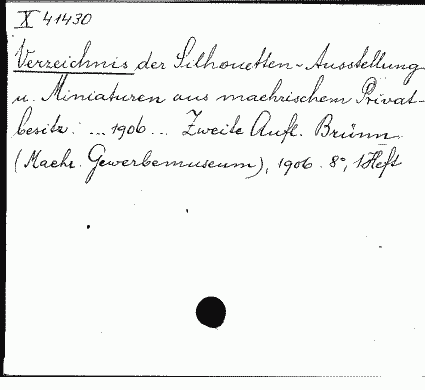 X 41430
Verzeichnis der Silhouetten-Ausstellung
u. Miniaturen aus maehrischem Privat-
besitz. ... 1906 ... Zweite Aufl. Brünn
(Maehr. Gewerbemuseum), 1906. 8°, 1 Heft